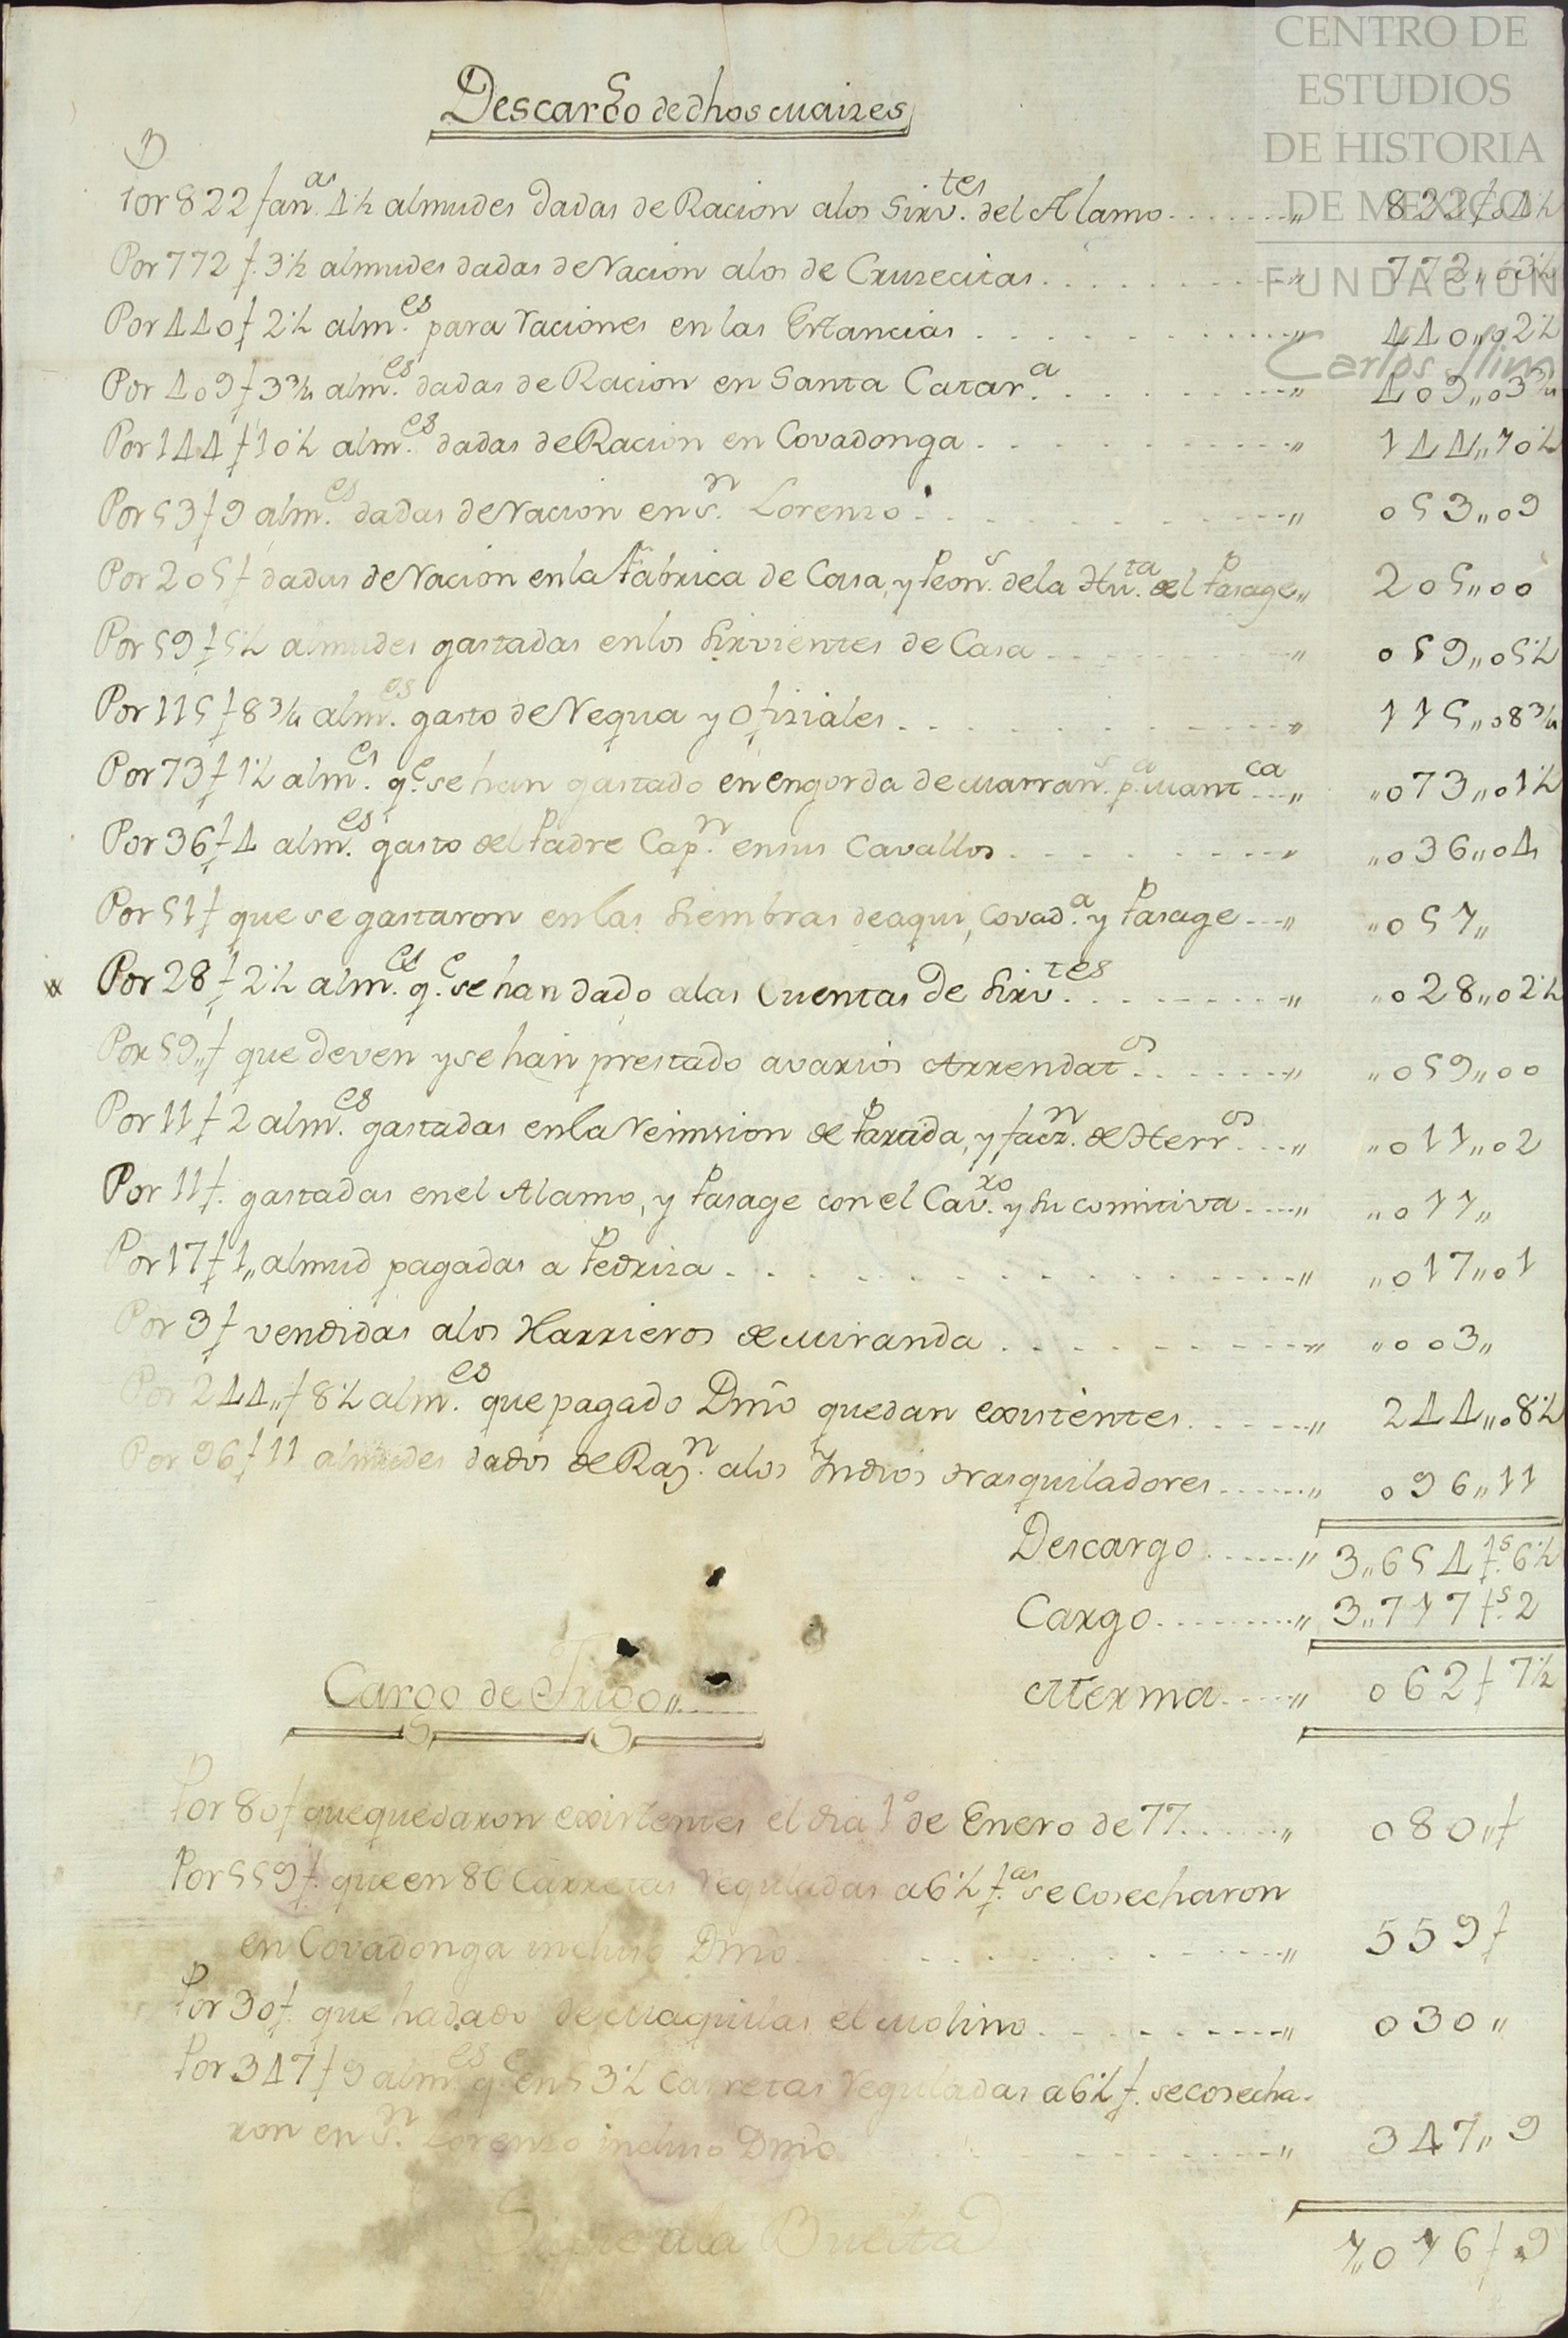 CENTRO DE
ESTUDIOS
DE HISTORIA
DE MEXICO
FUNDACIÓN
Carlos Slim
Descargo de dhos maizes
Por 822 fan.as 4½ almudes dadas de Racion a los Sirv.tes del Alamo „ 822f„04½
Por 772 f. 3½ almudes dadas de racion a los de Cruzecitas „ 772„03½
Por 440 f 2½ alm.es para raciones en las Estancias „ 440„02½
Por 409 f 3¾ alm.es dadas de Racion en Santa Catar.a „ 409„03¾
Por 144 f 10½ alm.es dadas de Racion en Covadonga „ 144„10½
Por 53 f 9 alm.es dadas de racion en S.n Lorenzo „ 053„09
Por 205 f dadas de racion en la Fabrica de Casa, y Peon.s de la Hu.ta del Pasage „ 205„00
Por 59 f 5½ almudes gastadas en los Sirvientes de Casa „ 059„05½
Por 115 f 8¾ alm.es gasto de requa y ofiziales „ 115„08¾
Por 73 f 1½ alm.es q.e se han gastado en engorda de marran.s p.a mant.ca „ „073„01½
Por 36 f 4 alm.es gasto del Padre Cap.n en sus Cavallos „ „036„04
Por 51 f que se gastaron en las Siembras de aqui, Covad.a y Pasage „ „051„
Por 28 f 2½ alm.es q.e se han dado a las Cuentas de Sirv.tes „ „028„02½
Por 59„ f que deven y se han prestado a varios Arrendat.os „ „059„00
Por 11 f 2 alm.es gastadas en la reimsion de Partida, y facz.n de Herr.os „ „011„02
Por 11 f. gastadas en el Alamo, y Pasage con el Cav.ro y su comitiva „ „011„
Por 17 f 1„ almud pagadas a Pedriza „ „017„01
Por 3 f vendidas a los Harrieros de Miranda „ „003„
Por 244„ f 8½ alm.es que pagado Dmõ quedan existentes „ 244„08½
Por 96 f 11 almudes dados de Raz.n a los Indios trasquiladores „ 096„11
Descargo „ 3„654 f.s 6½
Cargo „ 3„717 f.s 2
Merma „ 062 f 7½
Cargo de Trigo„
Por 80 f que quedaron existentes el dia 1º de Enero de 77 „ 080„f
Por 559 f. que en 86 Carretas reguladas a 6½ f.as se cosecharon
en Covadonga incluso Dmo „ 559 f
Por 30 f. que ha dado de maquilas el molino „ 030„
Por 347 f 9 alm.es q.e en 53½ carretas reguladas a 6½ f. se cosecha-
ron en S.n Lorenzo incluso Dmõ „ 347„9
Sigue a la Buelta
1„016 f 9